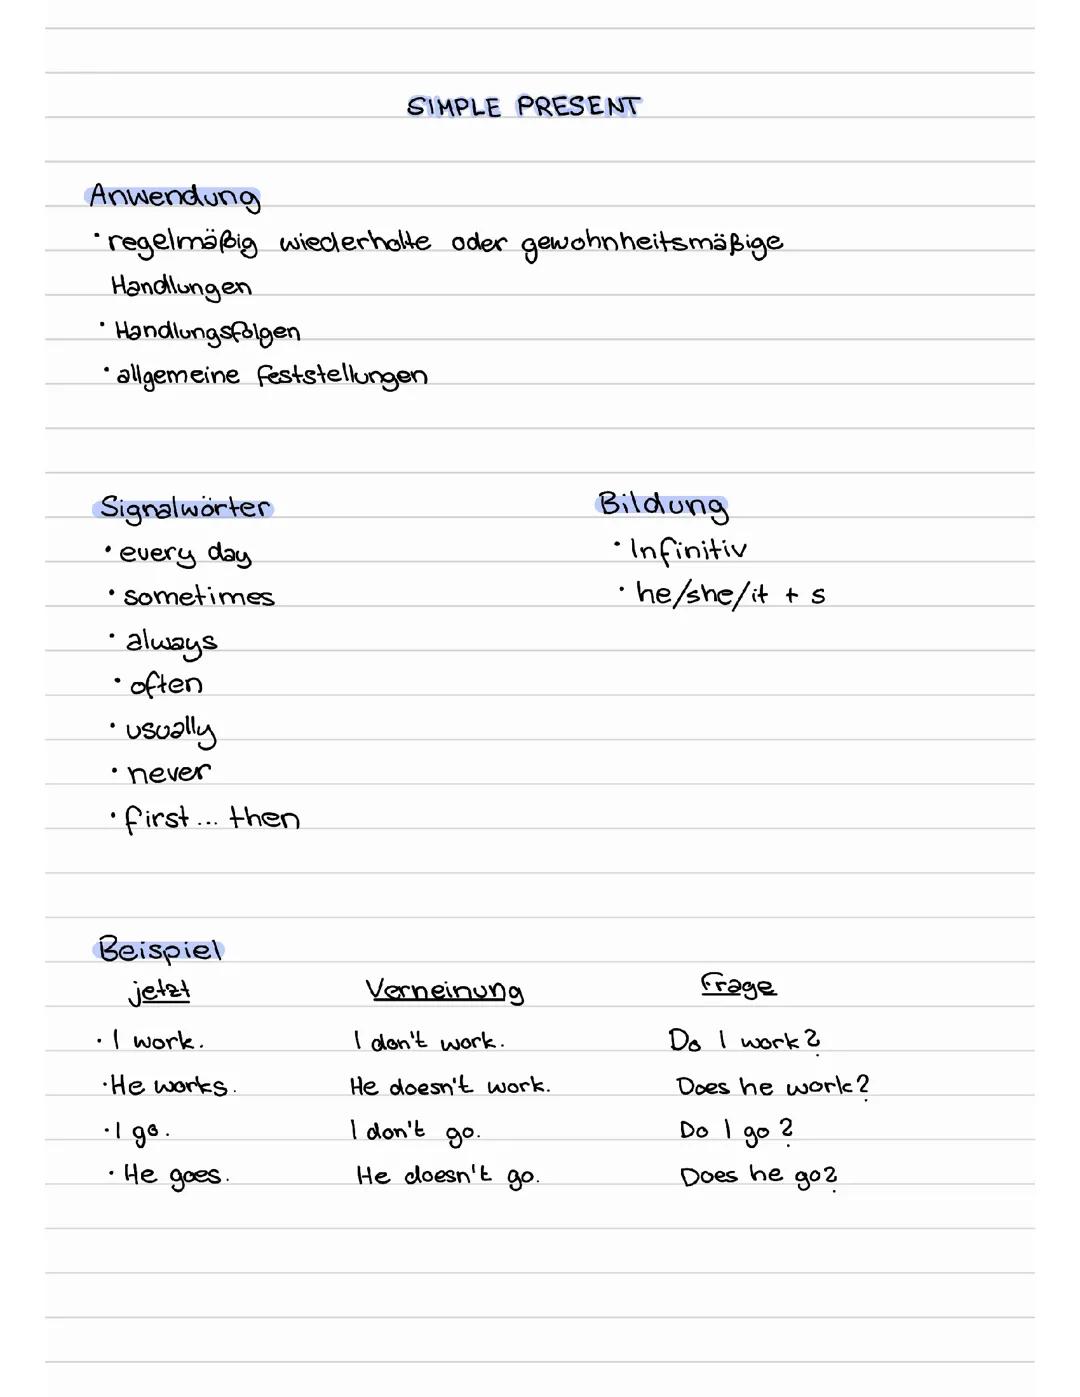 SIMPLE PRESENT
Anwendung
• regelmäßig wiederholte oder gewohnheitsmäßige
Handlungen
• Handlungsfolgen
• allgemeine Feststellungen
Signalwörter
• every day
• sometimes
• always
• often
• usually
• never
• first... then
Bildung
• Infinitiv
• he/she/it + s
Beispiel
jetzt Verneinung Frage
• I work. I don't work. Do I work?
• He works. He doesn't work. Does he work?
• I go. I don't go. Do I go?
• He goes. He doesn't go. Does he go?